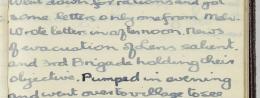 went down for rations and got
some letters only one from Melv.
Wrote letters in afternoon. News
of evacuation of Lens salient.
and 3rd Brigade holding their
objective. Pumped in evening
and went over to village to see